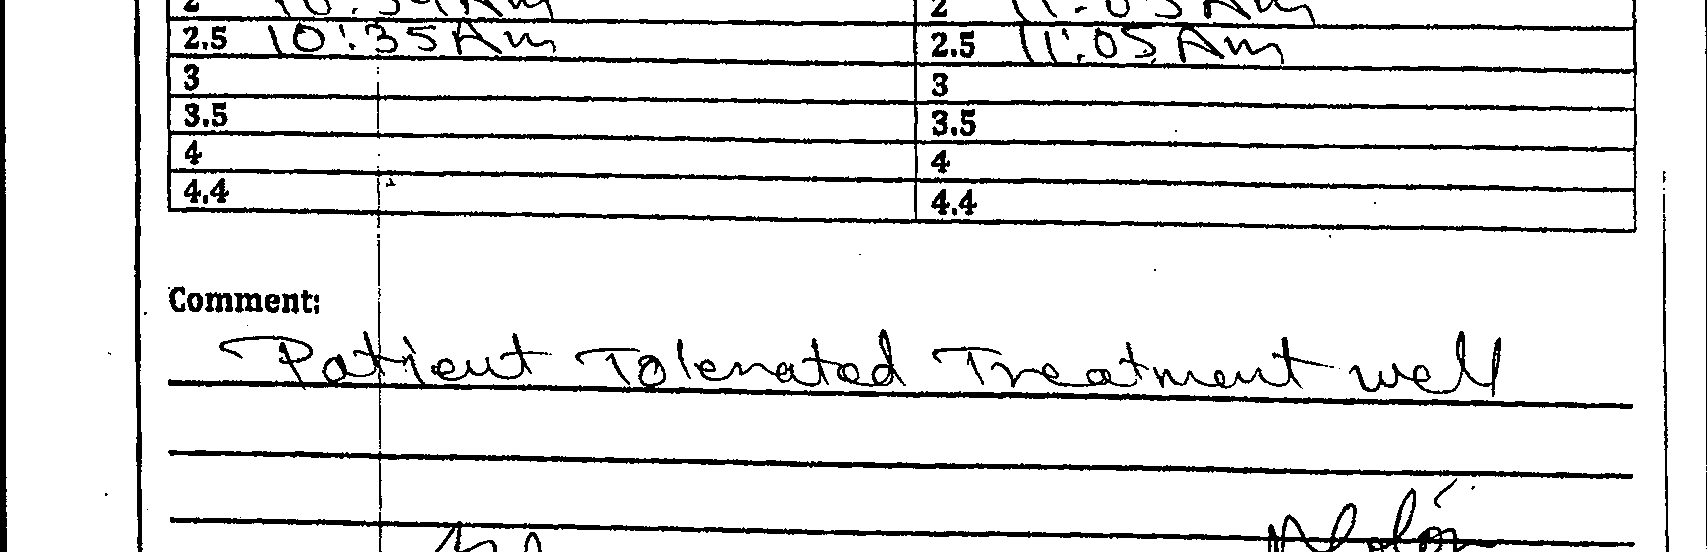 2 2
2.5 10:35 Am 2.5 11:05 Am
3 3
3.5 3.5
4 4
4.4 4.4
Comment:
Patient Tolerated Treatment well